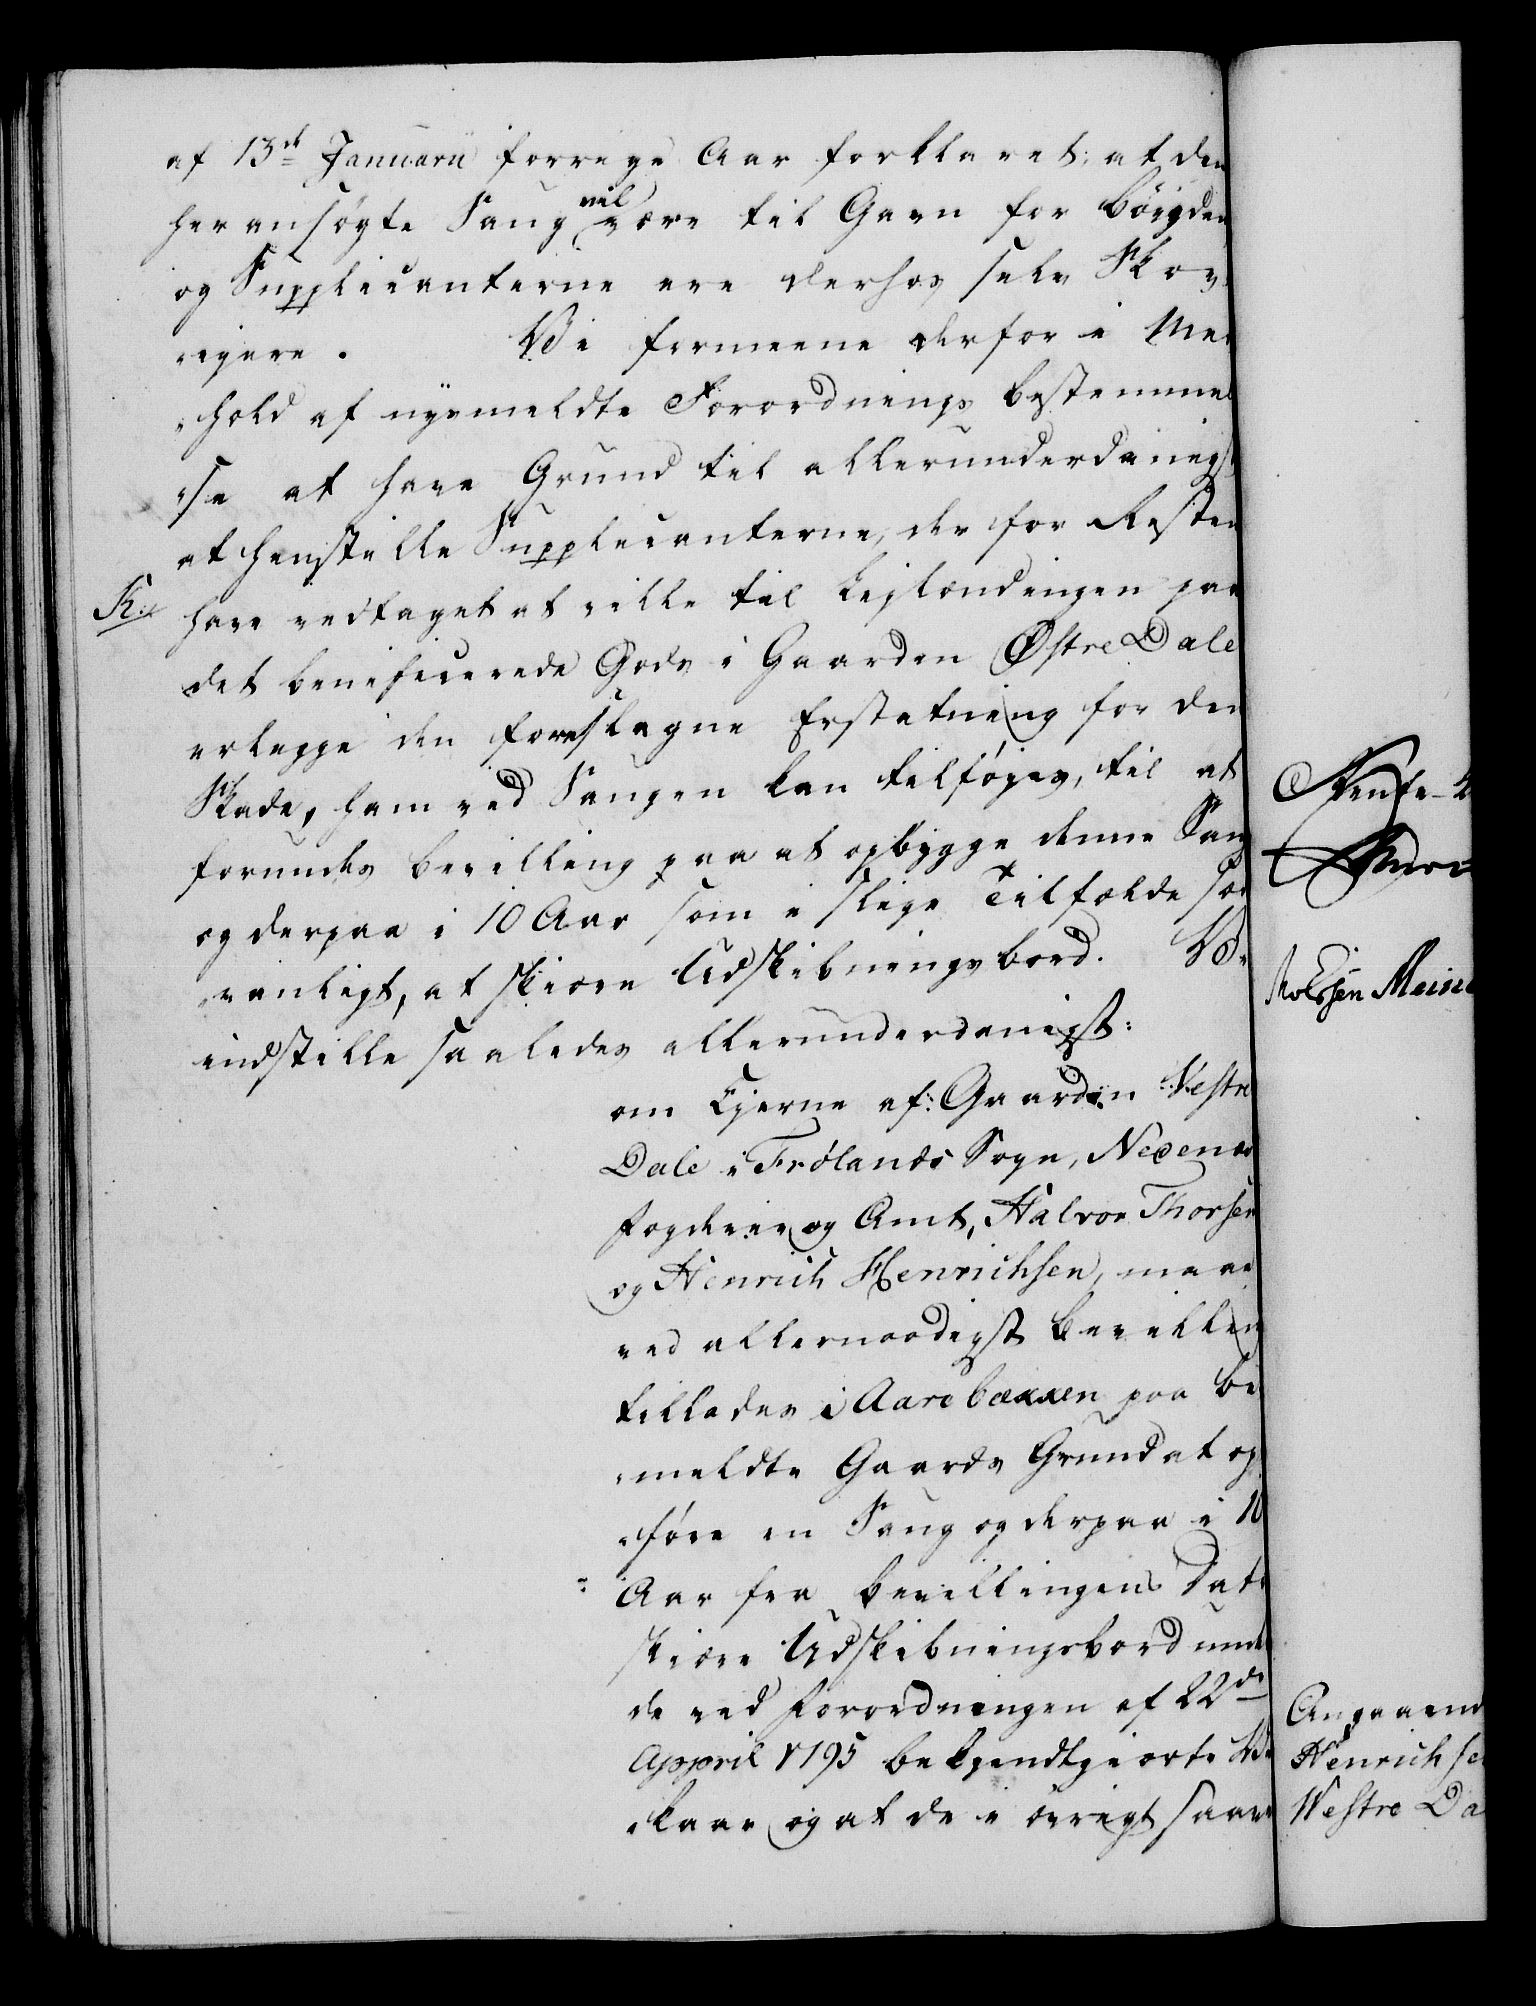 af 13de Januarii forrige Aar forklaret: at den
her ansøgte Saug vil være til Gavn for bøigden
og Supplicanterne ere derhos selv Skov-
eigere. Vi formeene derfor i Med
hold af nysmeldte Forordnings bestemmel
se at have Grund til allerunderdanigst
at henstille Supplicanterne, der for Resten
R: have vedtaget at ville til Lejlændingen paa
det beneficerede Gods i Gaarden Østre Dale
erlegge den foreslagne Erstatning for den
Skade, ham ved Saugen kan tilføjes, til at
forundes bevilling paa at opbygge denne Saug
og derpaa i 10 Aar som i slige Tilfælde sæd
vanligt, at skiære Udskibningsbord. Vi
indstille saaledes allerunderdanigst:
om Ejerne af Gaarden Vestre
Dale i Frølands Sogn, Nedenæs
fogderie og Amt, Halvor Thorsen
og Henrich Henrichsen, maae
ved allernaadigst bevilling
tillades i Aarebækken paa be
meldte Gaards Grund at op
føre en Saug og derpaa i 10
Aar fra bevillingens Dato
skiære Udskibningsbord unde
de ved Forordningen af 22de
Appril 1795 bekjendtgiorte Vil
kaar og at de i øvrigt saavel
Angaaend
Henrichse
Westre Da